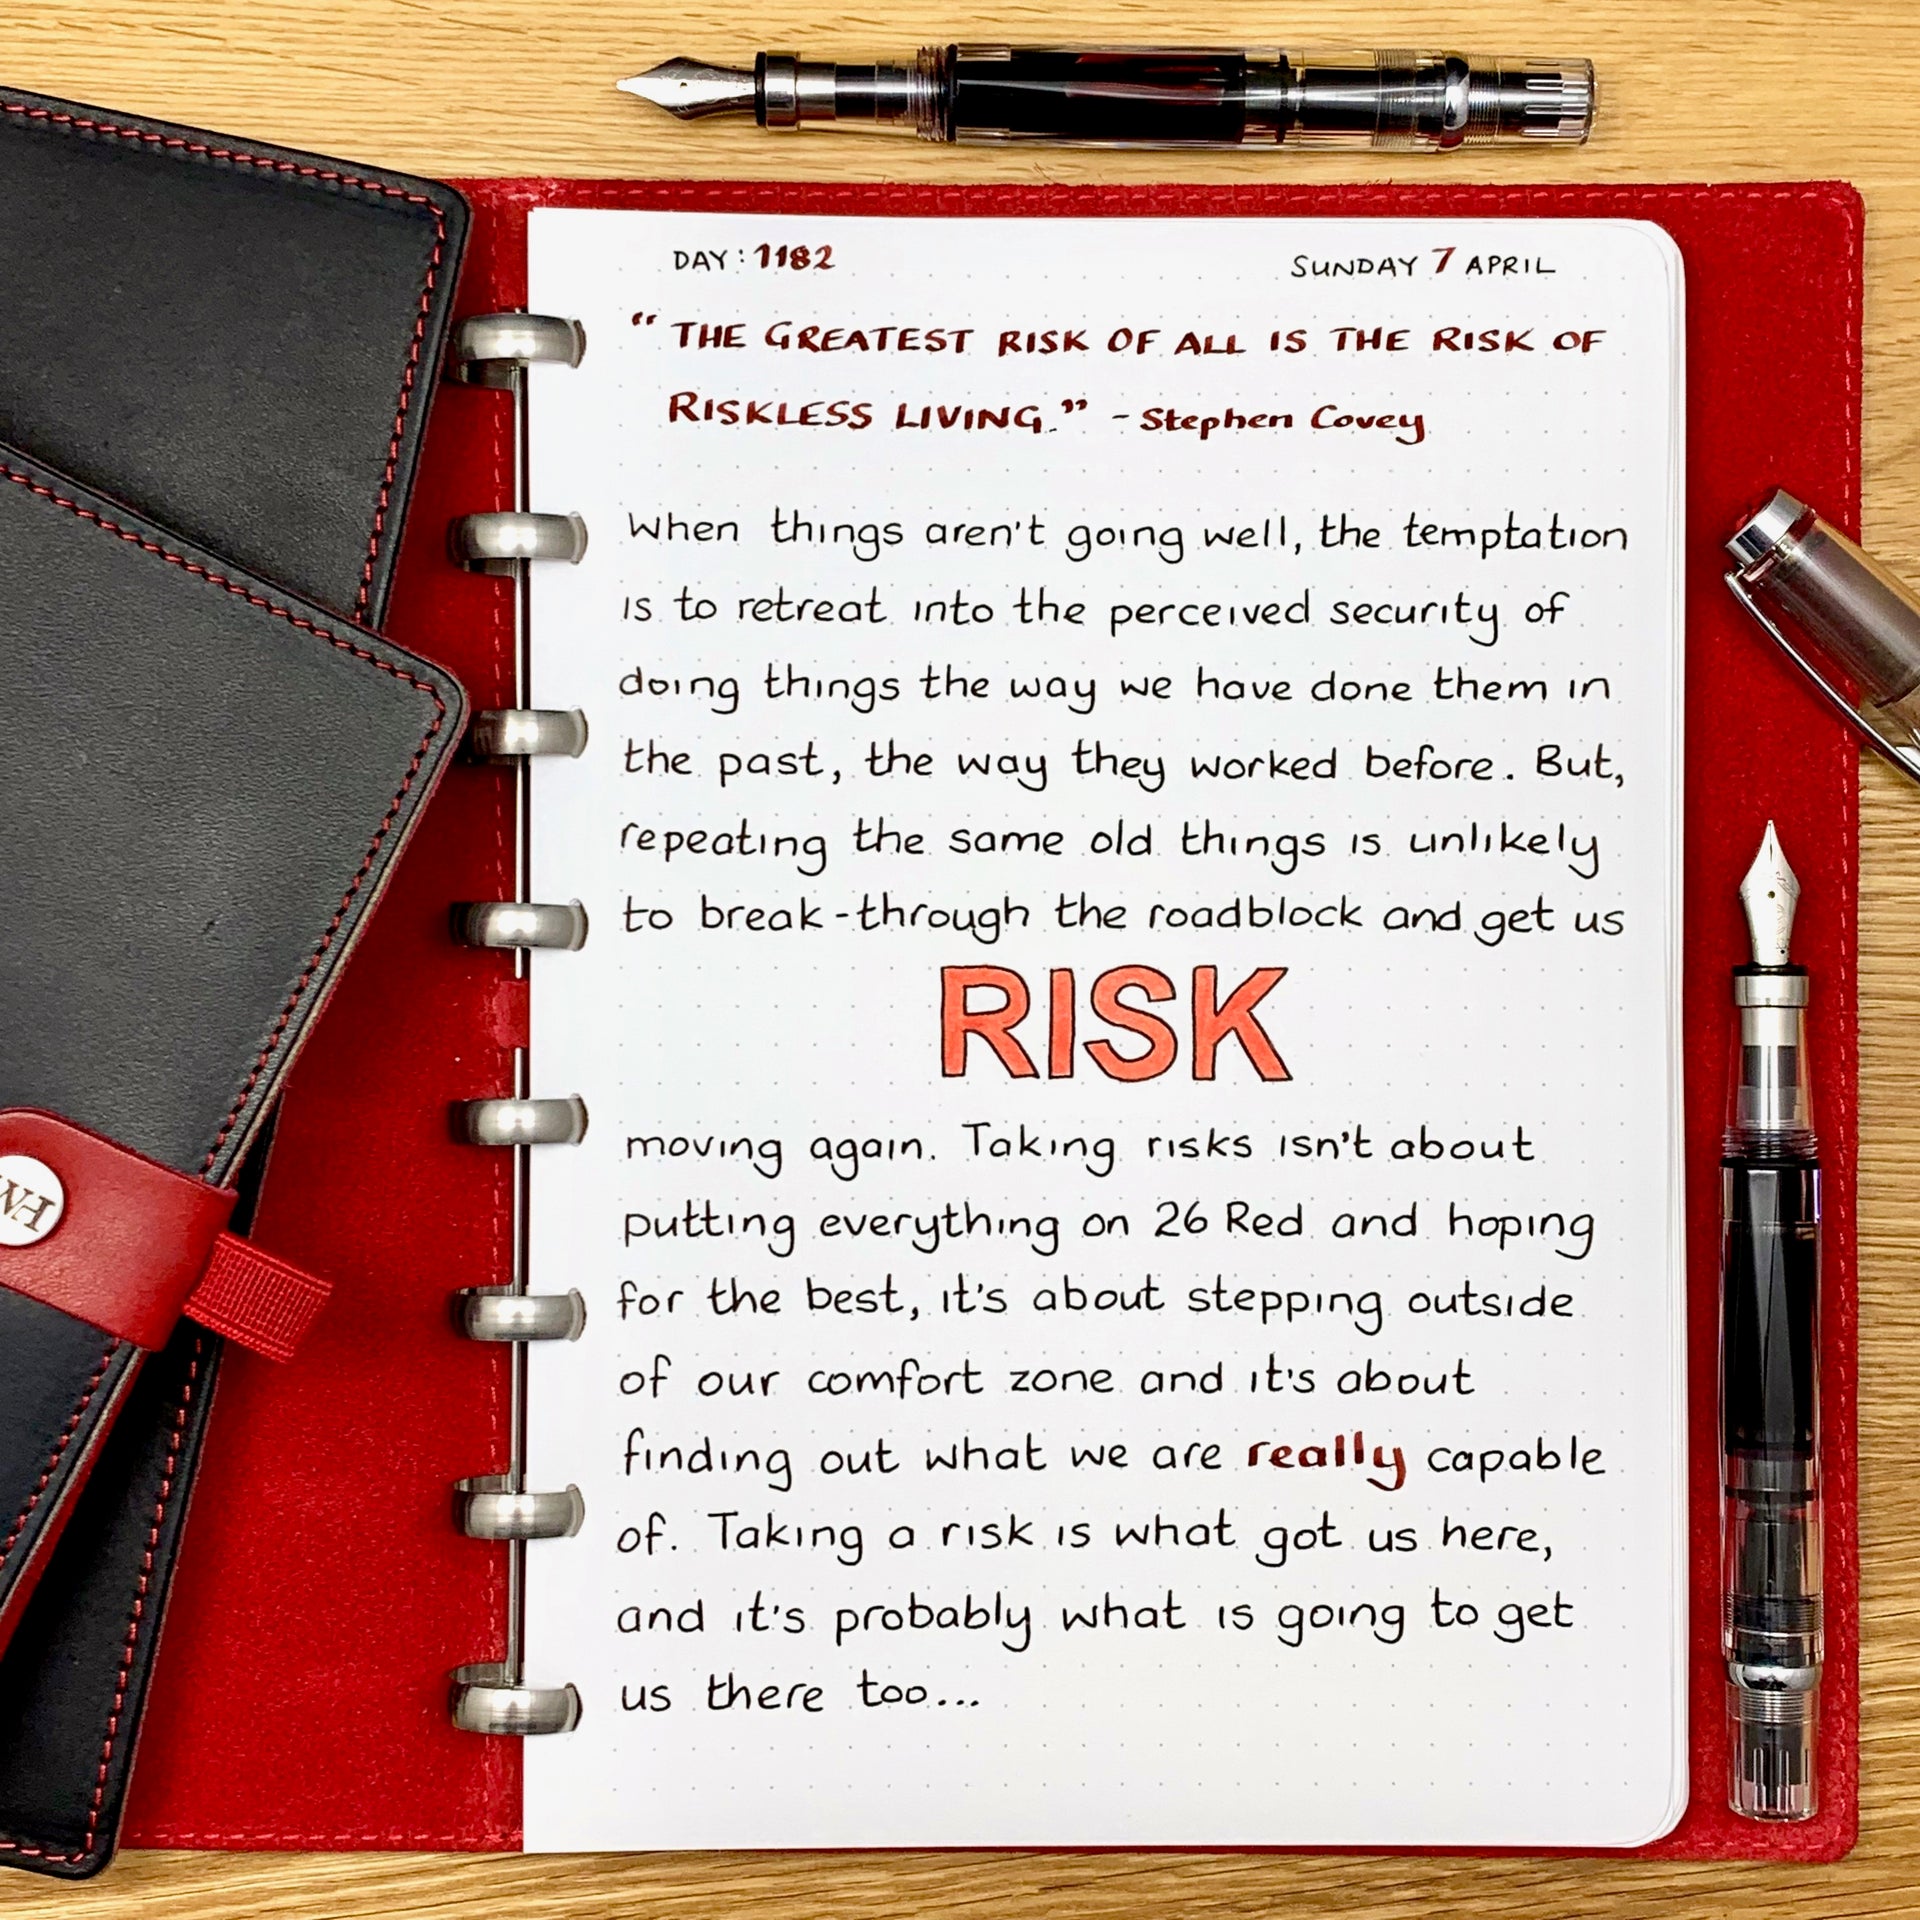 DAY: 1182
SUNDAY 7 APRIL
“THE GREATEST RISK OF ALL IS THE RISK OF
RISKLESS LIVING.” - Stephen Covey
When things aren't going well, the temptation
is to retreat into the perceived security of
doing things the way we have done them in
the past, the way they worked before. But,
repeating the same old things is unlikely
to break-through the roadblock and get us
RISK
moving again. Taking risks isn't about
putting everything on 26 Red and hoping
for the best, it's about stepping outside
of our comfort zone and it's about
finding out what we are really capable
of. Taking a risk is what got us here,
and it's probably what is going to get
us there too...